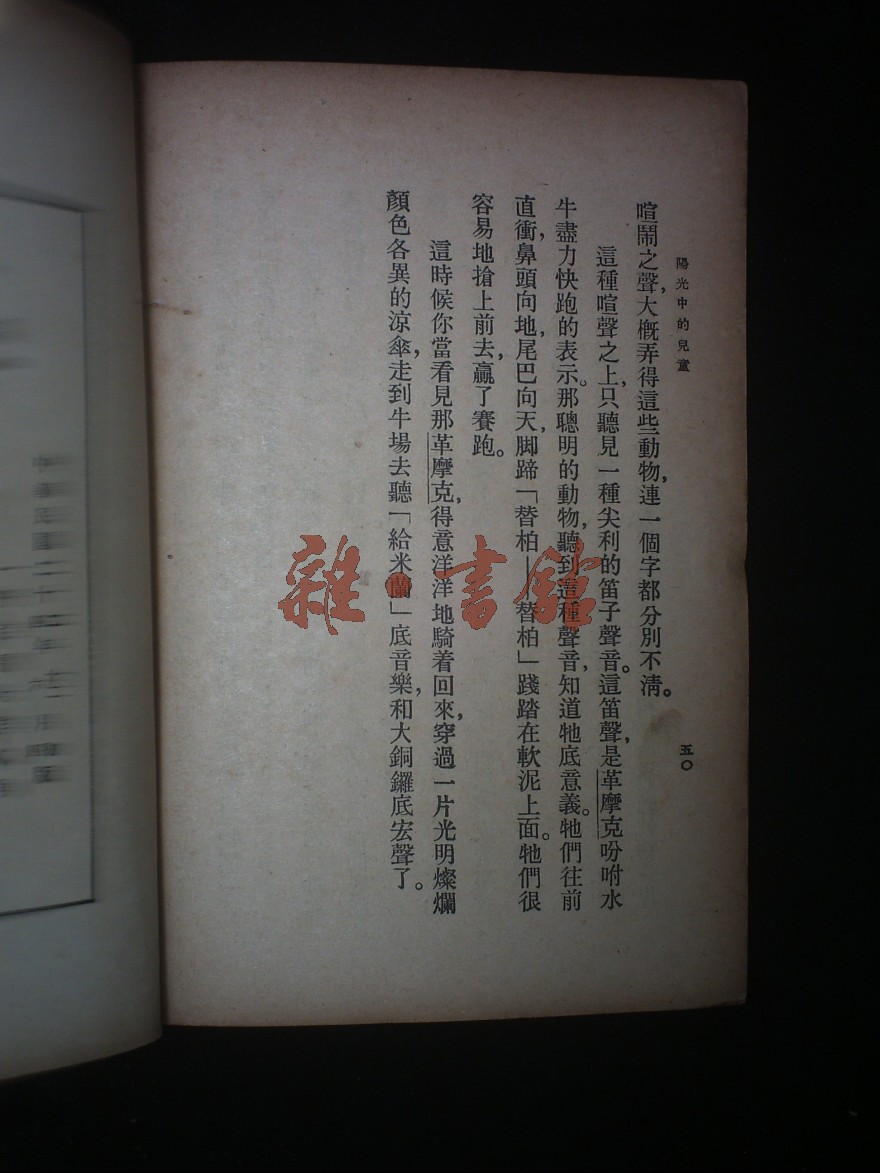 陽光中的兒童
五〇
喧鬧之聲，大槪弄得這些動物，連一個字都分別不淸。
這種喧聲之上，只聽見一種尖利的笛子聲音。這笛聲，是革摩克吩咐水
牛盡力快跑的表示。那聰明的動物，聽到這種聲音，知道牠底意義。牠們往前
直衝，鼻頭向地，尾巴向天，脚蹄「替柏—替柏」踐踏在軟泥上面。牠們很
容易地搶上前去，贏了賽跑。
這時候你當看見那革摩克，得意洋洋地騎着回來，穿過一片光明燦爛
顏色各異的涼傘，走到牛場去聽「給米蘭」底音樂，和大銅鑼底宏聲了。
雜·書館